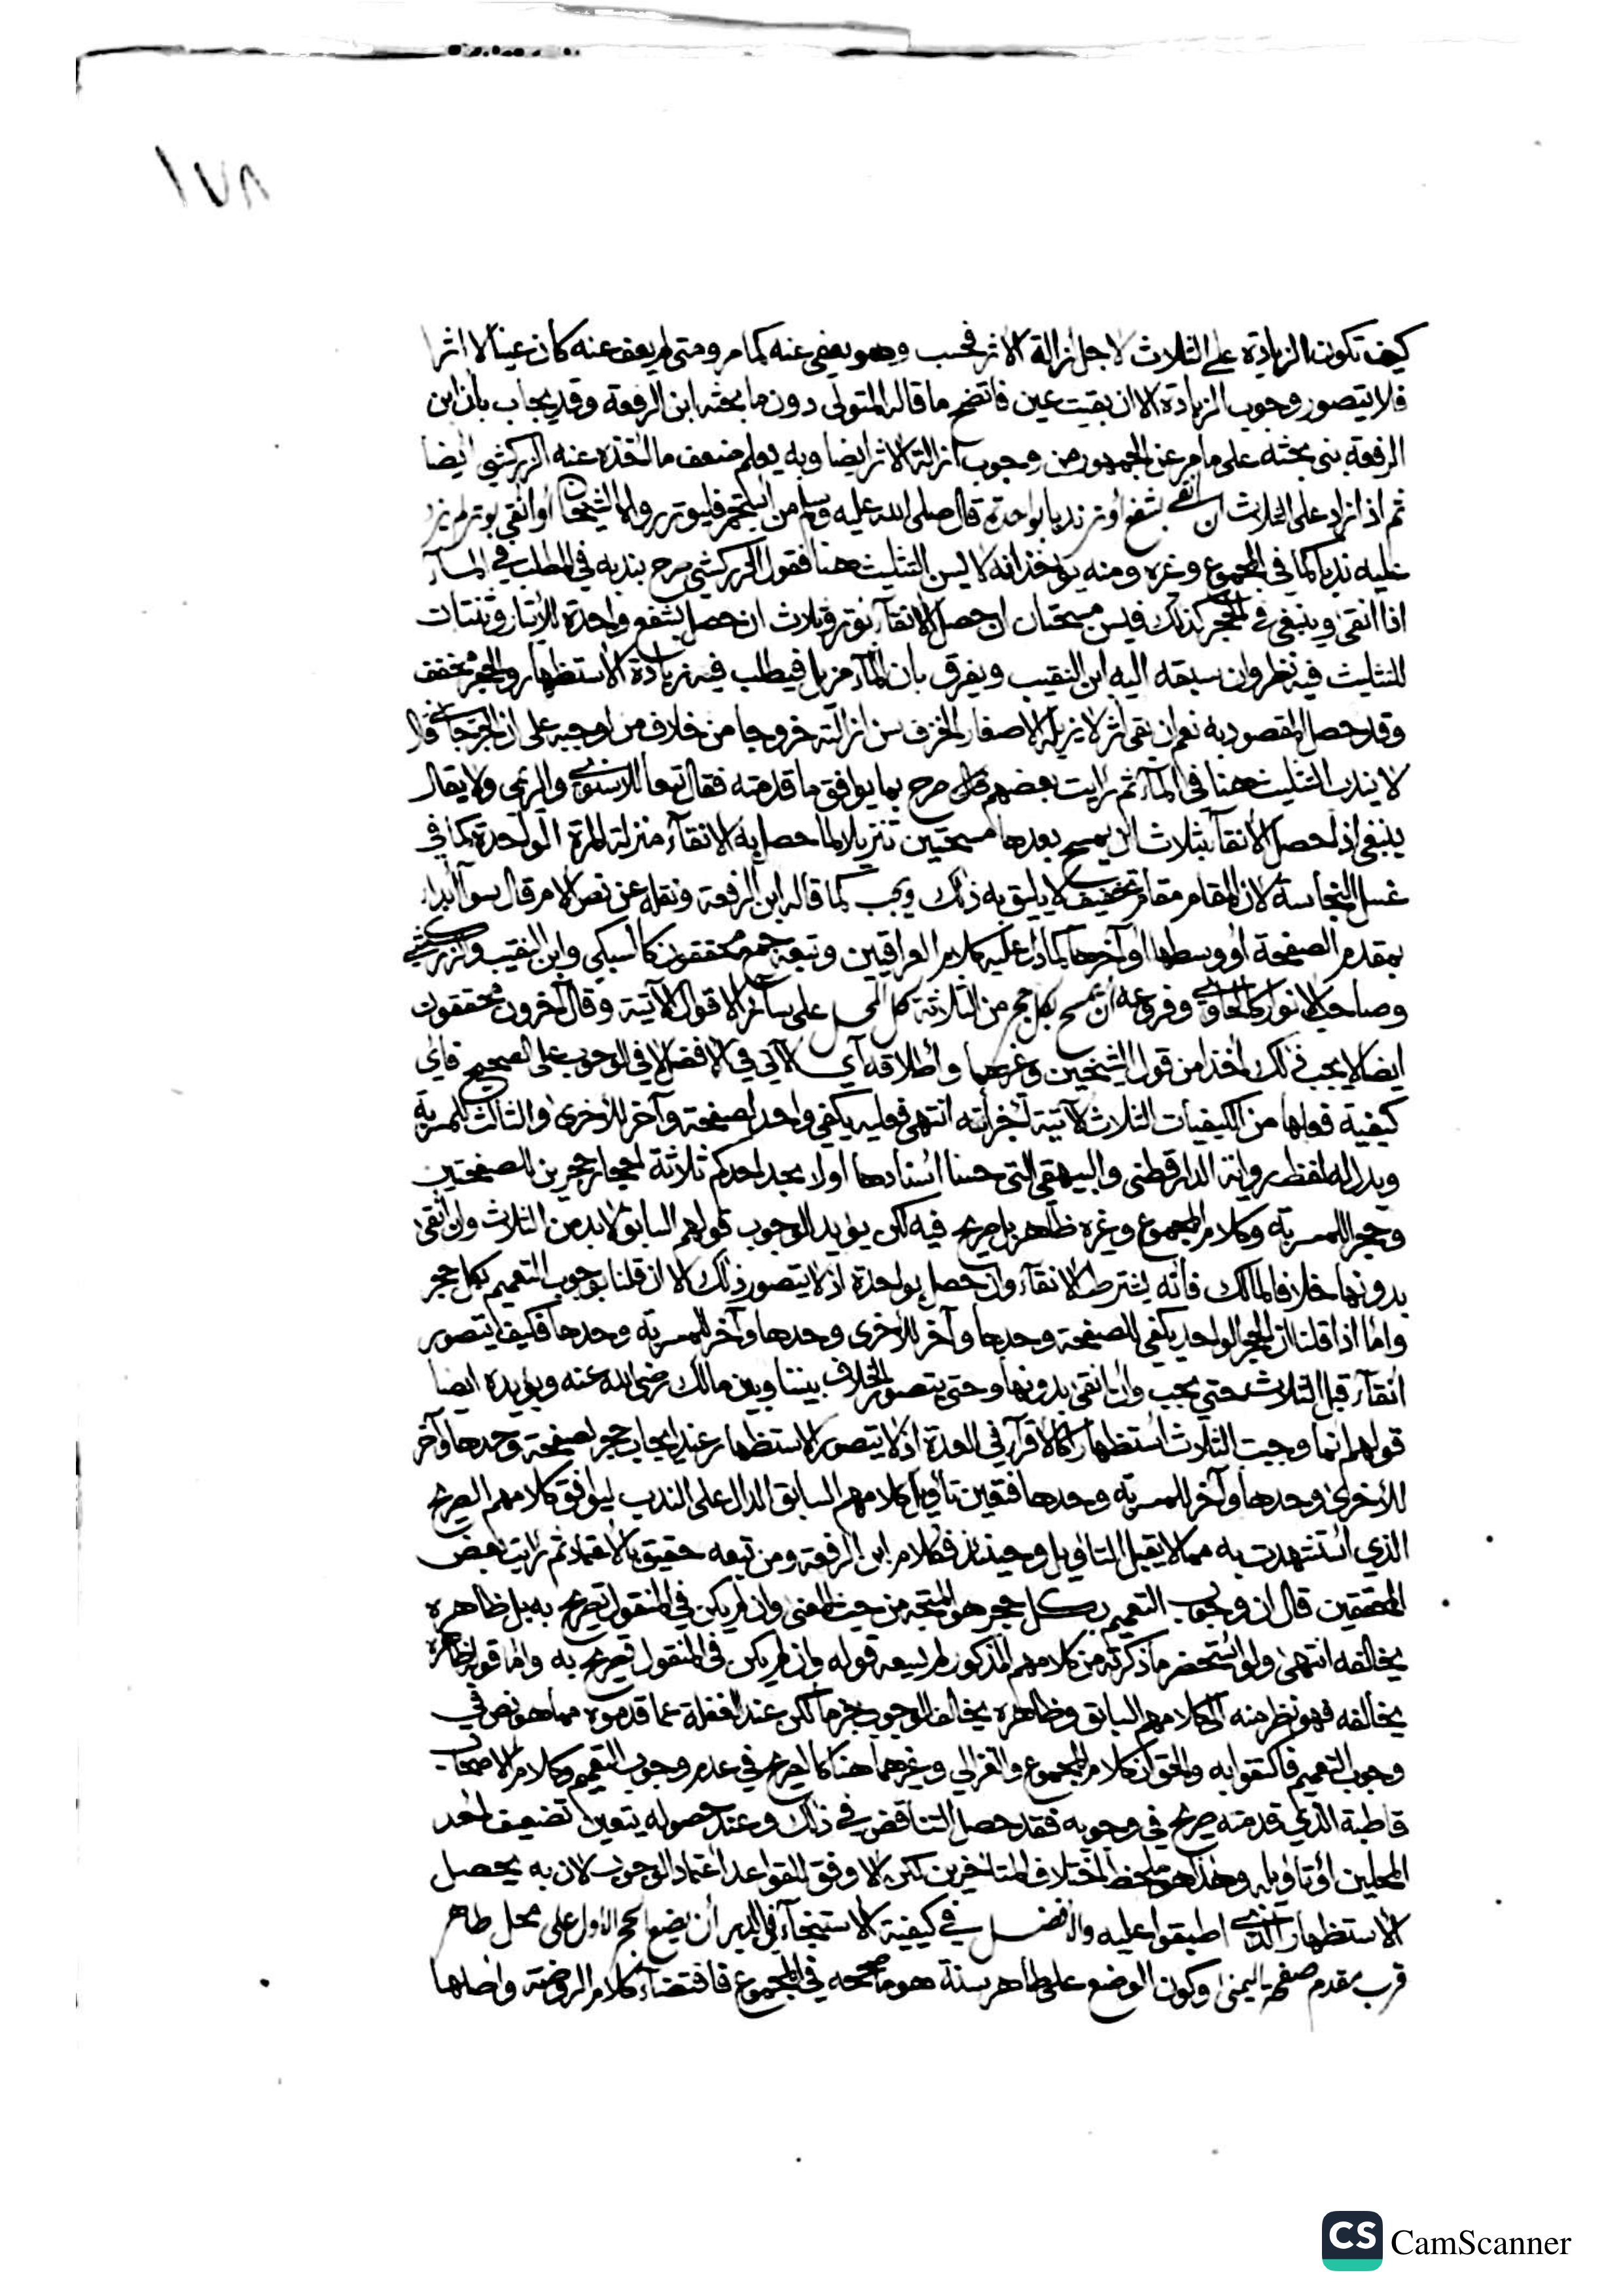 ١٧٨
كيف تكون الزيادة على الثلاث لاجل ازالة الاثر فحسب وهو يعفى عنه كما مر ومتى لم يعف عنه كان عينا لا اثرا
فلا يتصور وجوب الزيادة الا ان بقيت عين فاتضح ما قاله المتولى دون ما بحثه ابن الرفعة وقد يجاب بان ابن
الرفعة بنى بحثه على ما مر عن الجمهور من وجوب ازالة الاثر ايضا وبه يعلم ضعف ما اخذه عنه الزركشي ايضا
ثم اذا زاد على الثلاث ان انقى بشفع اوتر ندبا بواحدة قال صلى الله عليه وسلم من استجمر فليوتر رواه الشيخان او انقى بوتر لم يزد
عليه ندبا كما في المجموع وغيره ومنه يؤخذ انه لا يسن التثليث هنا فقول الزركشي صرح بندبه في المطلب في الماء
اذا انقى وينبغي في الحجر كذلك فيسن مسحتان ان حصل الانقآء بوتر وثلاث ان حصل بشفع واحدة للايتار وثنتان
للتثليث فيه نظر وان سبقه اليه ابن النقيب ويفرق بان المآء مزيل فيطلب فيه زيادة الاستظهار والحجر مخفف
وقد حصل المقصود به نعم ان بقى اثر لا يزيله الا صغار الخزف سن ازالته خروجا من خلاف من اوجبه على ان
لا يندب التثليث هنا في المآء ثم رايت بعضهم صرح بما يوافق ما قدمته فقال تبعا للاسنوي والريمى ولا يقال
ينبغي اذا حصل الانقآء بثلاث ان يمسح بعدها مسحتين تنزيلا لما حصل به الانقآء منزلة المرة الواحدة كما في
غسل النجاسة لان المقام مقام تخفيف لا يليق به ذلك ويجب كما قاله ابن الرفعة ونقله عن نص الام قال سوآء ابدا
بمقدم الصفحة او وسطها او آخرها كما دل عليه كلام العراقيين وتبعه جمع محققون كالسبكي وابن النقيب والزركشي
وصاحب الانوار كالحاوي وفروعه ان يمسح بكل حجر من الثلاثة كل المحل على سائر الاقوال الآتية وقال آخرون محققون
ايضا لا يجب ذلك اخذا من قول الشيخين وغيرهما واطلاقه اي الآتي في الافضل لا في الوجوب على الصحيح فاي
كيفية فعلها من الكيفيات الثلاث الآتية اجزأته انتهى فعليه يكفي واحد لصفحة وآخر للاخرى والثالث للمسربة
ويدل له لفظ رواية الدارقطنى والبيهقى التى حسنا اسنادها اولا يجد احدكم ثلاثة احجار حجرين للصفحتين
وحجر للمسربة وكلام المجموع وغيره ظاهر بل صريح فيه لكن يؤيد الوجوب قولهم السابق لا بد من الثلاث وان انقى
بدونها خلافا لمالك فانه يشترط الانقآء وان حصل بواحدة اذ لا يتصور ذلك الا ان قلنا بوجوب التعميم بكل حجر
واما اذا قلنا ان الحجر الواحد يكفي للصفحة وحدها وآخر للاخرى وحدها وآخر للمسربة وحدها فكيف يتصور
انقآء قبل الثلاث حتى يجب وان انقى بدونها وحتى يتصور الخلاف بيننا وبين مالك رضى الله عنه ويؤيده ايضا
قولهم انما وجبت الثلاث استظهارا كالاقرآء في العدة اذ لا يتصور الاستظهار عند ايجاب حجر لصفحة وحدها وآخر
للاخرى وحدها وآخر للمسربة وحدها فتعين تاويل كلامهم السابق الدال على الندب ليوافق كلامهم الصريح
الذي استشهدت به مما لا يقبل التاويل وحينئذ فكلام ابن الرفعة ومن تبعه حقيق بالاعتماد ثم رايت بعض
المحققين قال ان وجوب التعميم بكل حجر هو المتجه من حيث المعنى وان لم يكن في المنقول تصريح به بل ظاهره
يخالفه انتهى ولو استحضر ما ذكرته من كلامهم المذكور لم يسعه قوله وان لم يكن في المنقول تصريح به واما قوله ظاهره
يخالفه فهو نظر منه الى كلامهم السابق وظاهره يخالف الوجوب جزما لكن عند الغفلة عما قدموه مما هو نص في
وجوب التعميم فاكتفوا به والحق ان كلام المجموع والغزالي وغيرهما هنا كالصريح في عدم وجوب التعميم وكلام الاصحاب
قاطبة الذي قدمته صريح في وجوبه فقد حصل التناقض في ذلك وعند حصوله يتعين تضعيف احد
المحلين او تاويله وهذا هو ملحظ اختلاف المتاخرين لكن الاوفق للقواعد اعتماد الوجوب لان به يحصل
الاستظهار الذي اطبقوا عليه والافضل في كيفية الاستنجآء في الدبر ان يضع الحجر الاول على محل طاهر
قرب مقدم صفحته اليمنى وكون الوضع على طاهر سنة هو ما صححه في المجموع فاقتضآء كلام الروضة واصلها
CS CamScanner